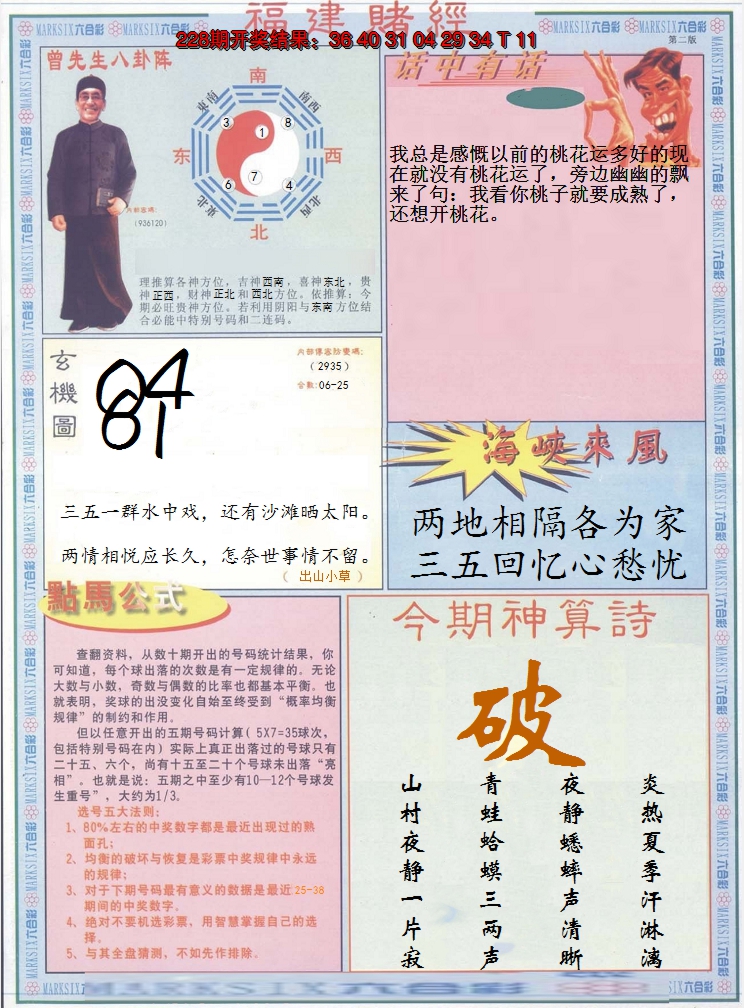 福建賭經
228期开奖结果：36 40 31 04 29 34 T 11
MARKSIX六合彩
第二版
曾先生八卦阵
南
東南
南西
3
1
8
东
西
6
7
4
東北
北西
北
內部密碼：
（936120）
理推算各神方位，吉神西南，喜神东北，贵
神正西，财神正北和西北方位。依推算：今
期必旺贵神方位。若利用阴阳与东南方位结
合必能中特别号码和二连码。
话中有话
我总是感慨以前的桃花运多好的现
在就没有桃花运了，旁边幽幽的飘
来了句：我看你桃子就要成熟了，
还想开桃花。
玄機圖
04
61
（2935）
合数:06-25
三五一群水中戏，还有沙滩晒太阳。
两情相悦应长久，怎奈世事情不留。
（ 出山小草 ）
海峽來風
两地相隔各为家
三五回忆心愁忧
點馬公式
查翻资料，从数十期开出的号码统计结果，你
可知道，每个球出落的次数是有一定规律的。无论
大数与小数，奇数与偶数的比率也都基本平衡。也
就表明，奖球的出没变化自始至终受到“概率均衡
规律”的制约和作用。
但以任意开出的五期号码计算( 5X7=35球次，
包括特别号码在内) 实际上真正出落过的号球只有
二十五、六个，尚有十五至二十个号球未出落“亮
相”。也就是说：五期之中至少有10—12个号球发
生重号”，大约为1/3。
选号五大法则：
1、80%左右的中奖数字都是最近出现过的熟
面孔；
2、均衡的破坏与恢复是彩票中奖规律中永远
的规律；
3、对于下期号码最有意义的数据是最近25-38
期间的中奖数字。
4、绝对不要机选彩票，用智慧掌握自己的选
择。
5、与其全盘猜测，不如先作排除。
今期神算詩
破
山村夜静一片寂
青蛙蛤蟆三两声
夜静蟋蟀声清晰
炎热夏季汗淋漓